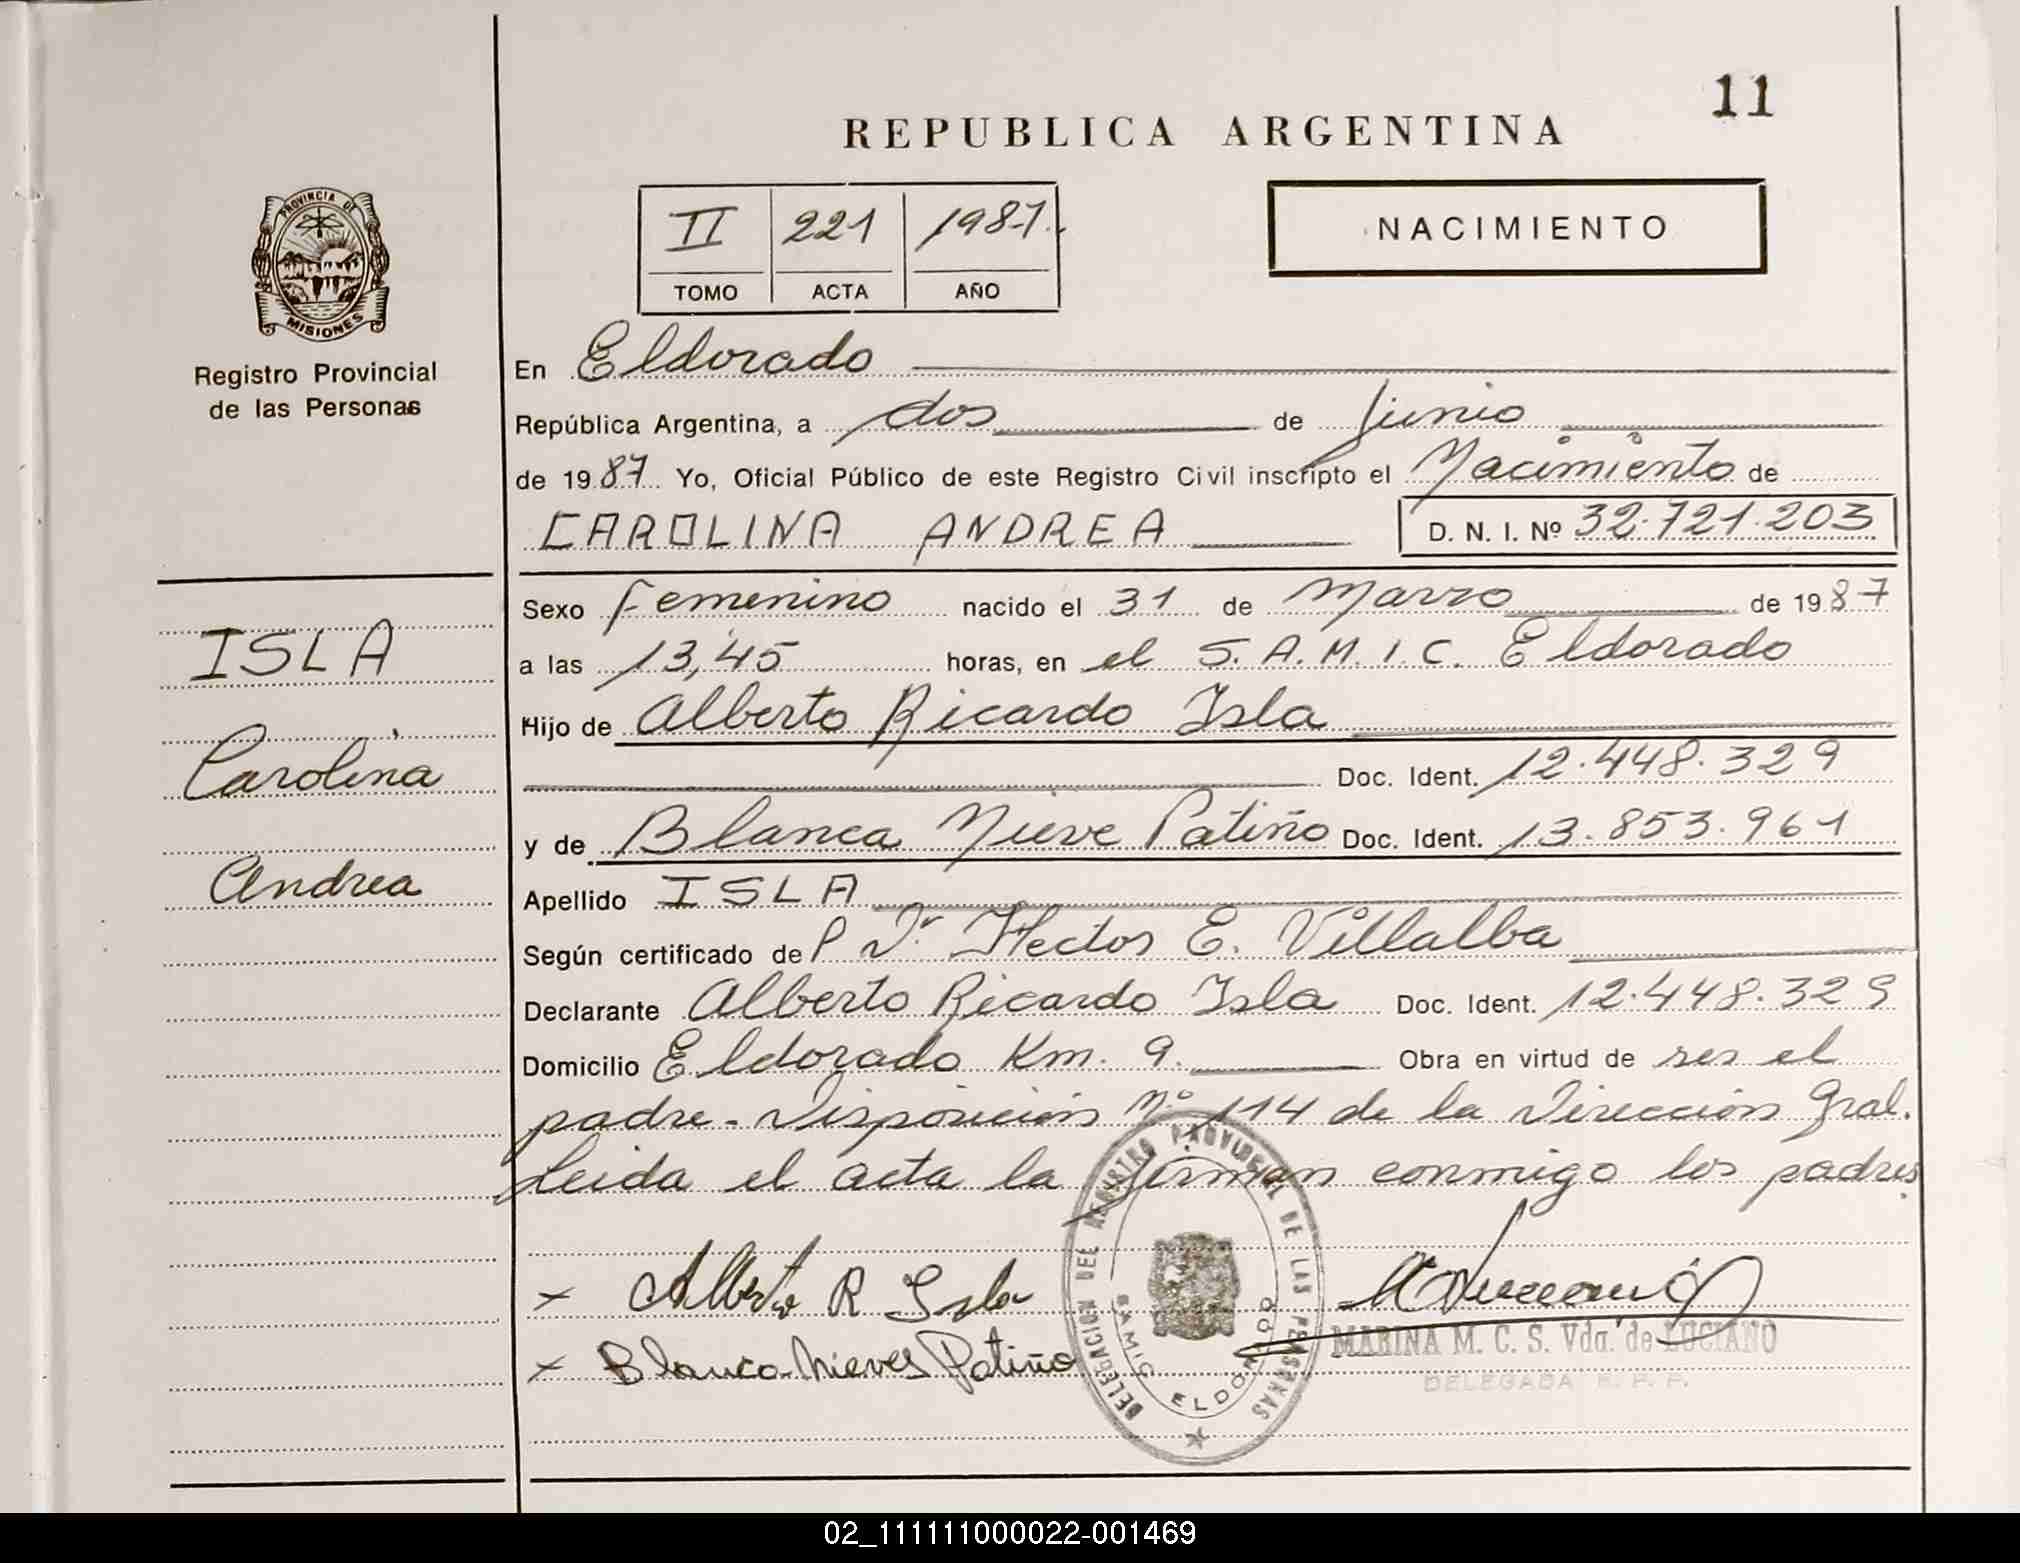 11
REPUBLICA ARGENTINA
PROVINCIA DE
MISIONES
Registro Provincial
de las Personas
II 221 1987
TOMO ACTA AÑO
NACIMIENTO
En Eldorado
República Argentina, a dos de Junio
de 1987 Yo, Oficial Público de este Registro Civil inscripto el Nacimiento de
CAROLINA ANDREA D. N. I. Nº 32.721.203
ISLA
Carolina
Andrea
Sexo Femenino nacido el 31 de Marzo de 1987
a las 13,45 horas, en el S.A.M.I.C. Eldorado
Hijo de Alberto Ricardo Isla
Doc. Ident. 12.448.329
y de Blanca Nieve Patiño Doc. Ident. 13.853.961
Apellido ISLA
Según certificado de P Dr Hector E. Villalba
Declarante Alberto Ricardo Isla Doc. Ident. 12.448.329
Domicilio Eldorado Km. 9. Obra en virtud de ser el
padre - Disposición Nº 114 de la Dirección Gral.
Leida el acta la firman conmigo los padres
x Alberto R Isla
x Blanca Nieves Patiño
DELEGACION DEL REGISTRO PROVINCIAL DE LAS PERSONAS
SAMIC ELDORADO
MARINA M. C. S. Vda. de LUCIANO
DELEGADA R. P. P.
02_111111000022-001469